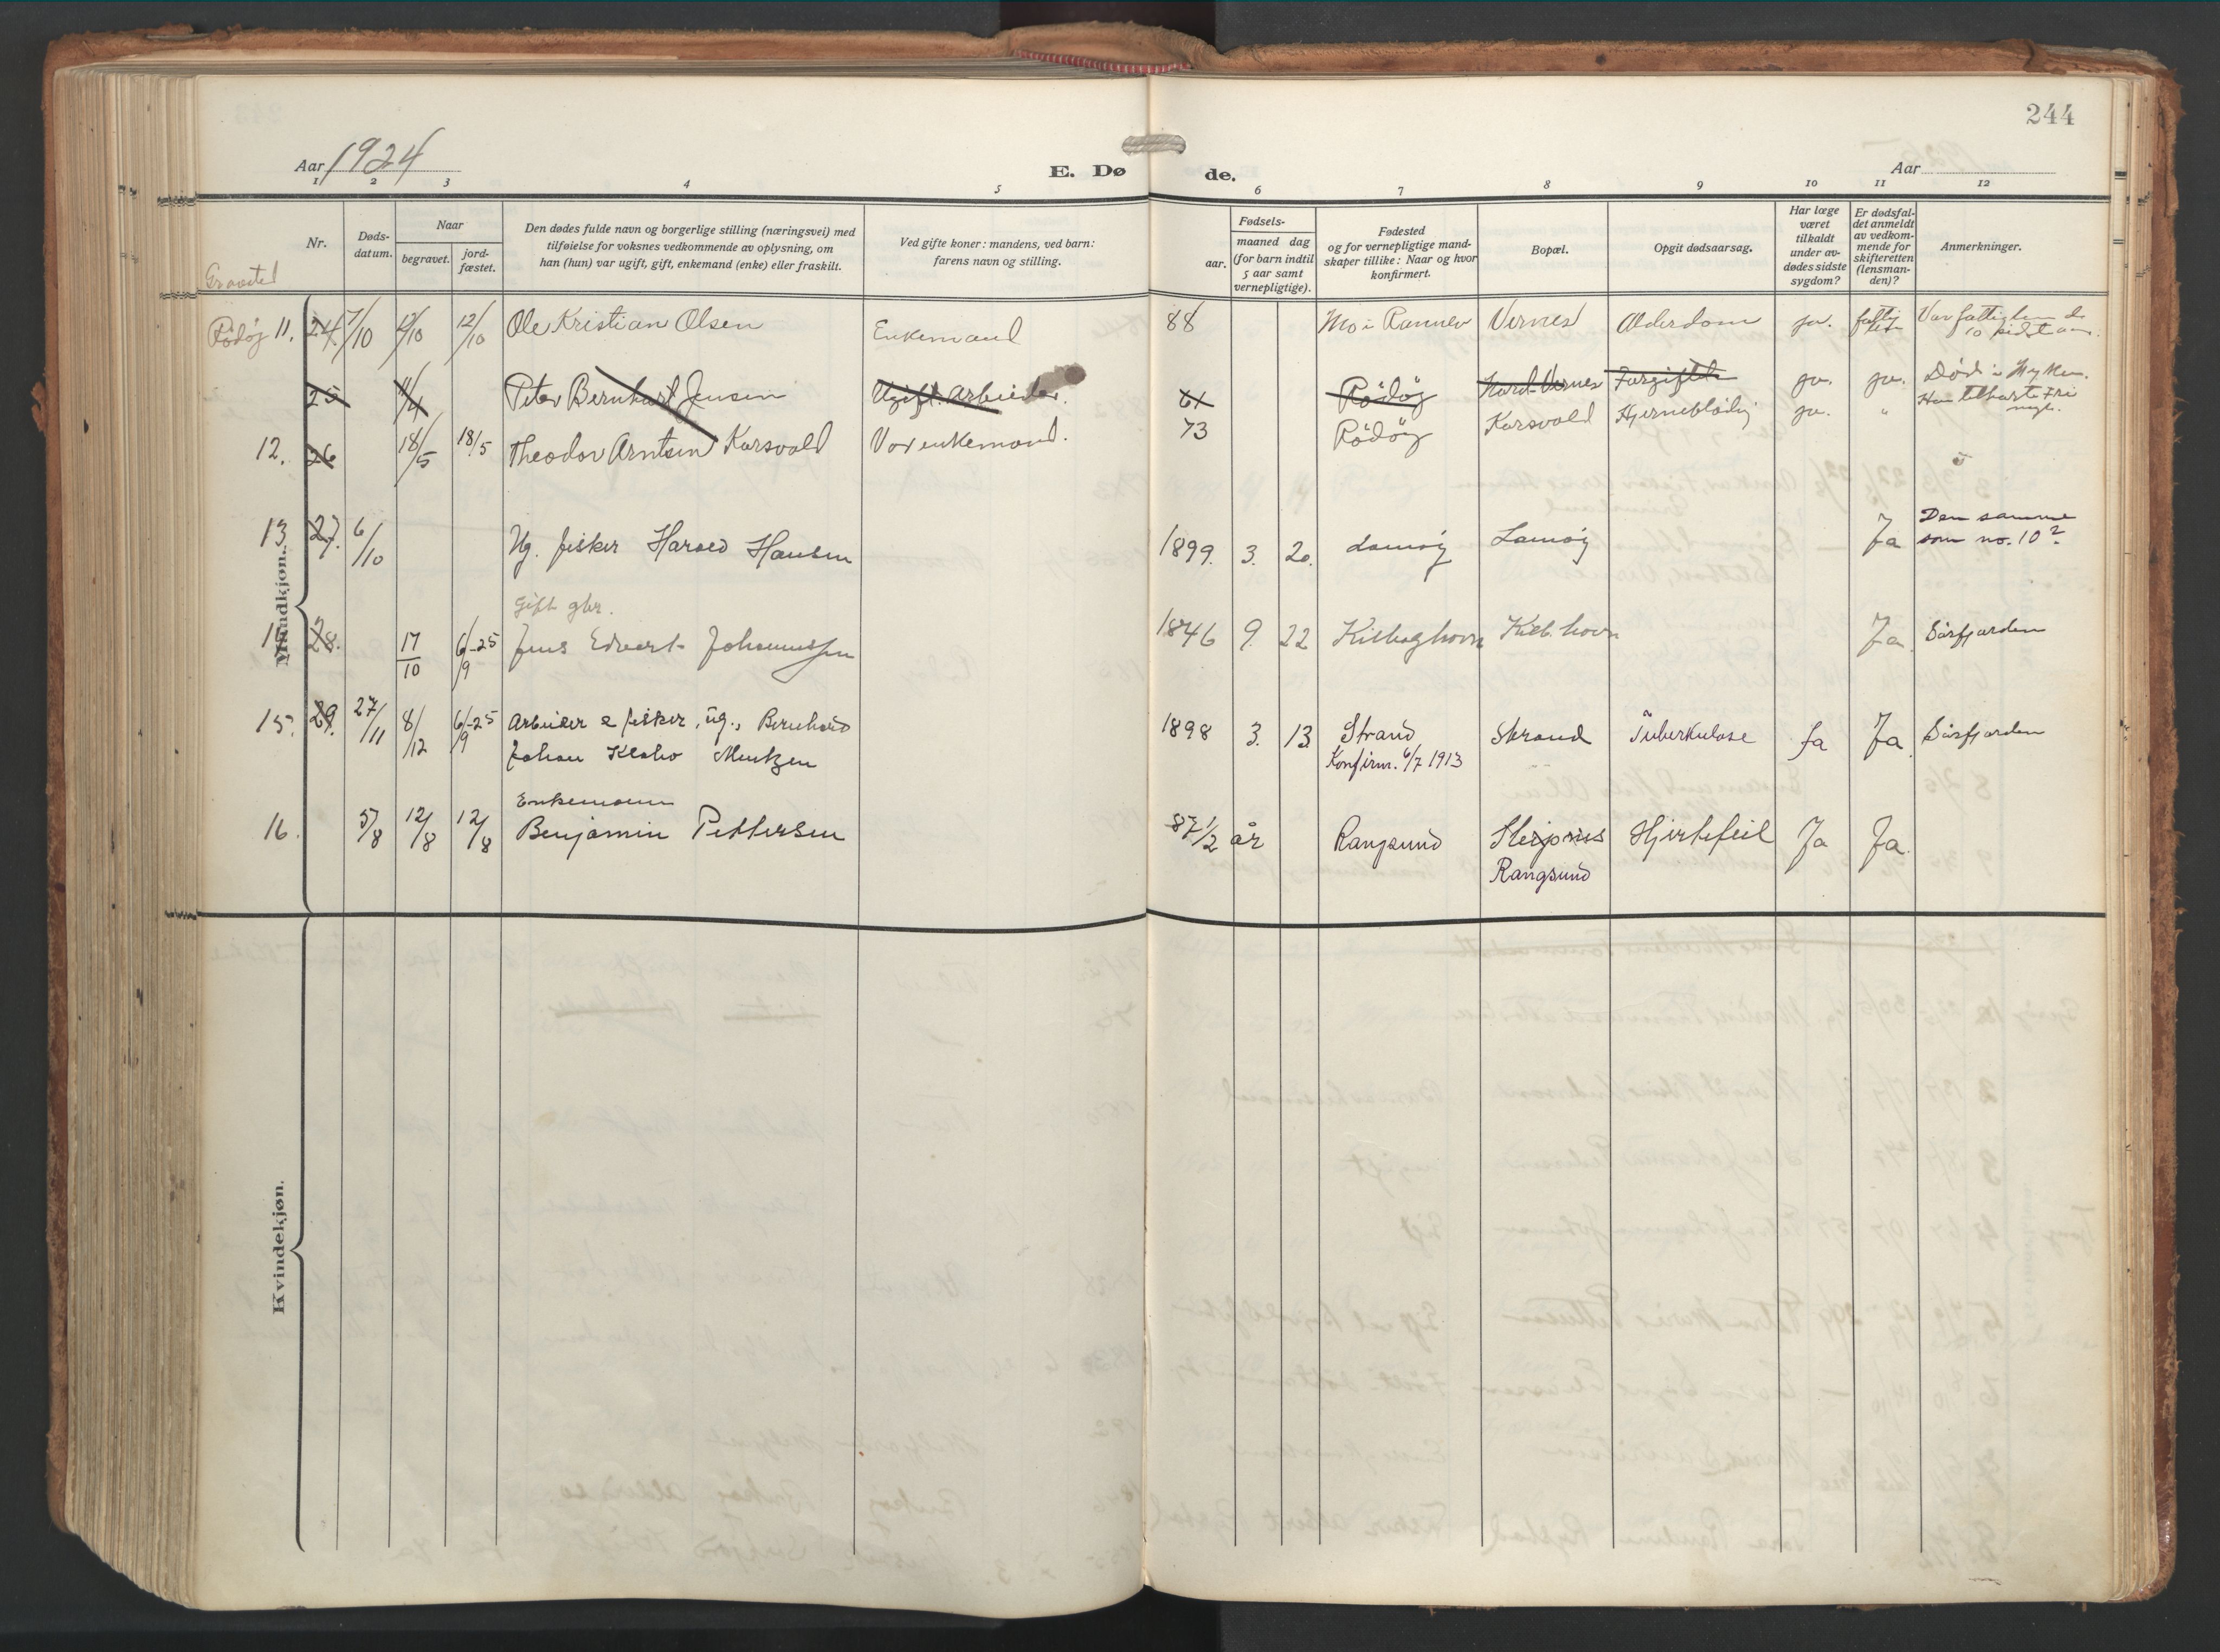 244
Aar 1924
E. Døde.
Aar
1 2 3 4 5 6 7 8 9 10 11 12
Gravsted
Nr.
Døds-
datum.
Naar
begravet.
jord-
fæstet.
Den dødes fulde navn og borgerlige stilling (næringsvei) med
tilføielse for voksnes vedkommende av oplysning, om
han (hun) var ugift, gift, enkemand (enke) eller fraskilt.
Ved gifte koner: mandens, ved barn:
farens navn og stilling.
Fødsels-
aar.
maaned dag
(for barn indtil
5 aar samt
vernepligtige).
Fødested
og for vernepligtige mand-
skaper tillike: Naar og hvor
konfirmert.
Bopæl.
Opgit dødsaarsag.
Har læge
været
tilkaldt
under av-
dødes sidste
sygdom?
Er dødsfal-
det anmeldt
av vedkom-
mende for
skifteretten
(lensman-
den)?
Anmerkninger.
Mandkjøn.
Rödöy 11. 24. 7/10 12/10 12/10 Ole Kristian Olsen Enkemand 88 Mo i Rannen Vernes Alderdom ja.
25 11/4 Peter Bernhart Jensen Ugift. Arbeider. 61 Rödöy Nord-Vernes Forgiftet ja. ja. Död i Myken.
12. 26 18/5 18/5 Theodor Arntsen Karsvold Var enkemand. 73 Rödöy Karsvold Hjerneblödn ja. "
13 27. 6/10 Ug. fisker Harald Hansen 1899. 3. 20. Lamöy Lamöy Ja Den samme
som no. 10?
Gift gbr.
14 28. 17/10 6/9-25 Jens Edvert Johannessen 1846 9. 22 Kilboghovn Kilb. hovn Ja. Sörfjorden
15. 29. 27/11 8/12 6/9-25 Arbeider & fisker, ug., Bernhard 1898 3. 13. Strand Strand Tuberkulose Ja Ja Sörfjorden
Johan Mentzen Konfirm. 6/7 1913
Enkemann
16. 5/8 12/8 12/8 Benjamin Pettersen 87 1/2 år Rangsund Hjertefeil Ja Ja.
Rangsund
Kvindekjøn.